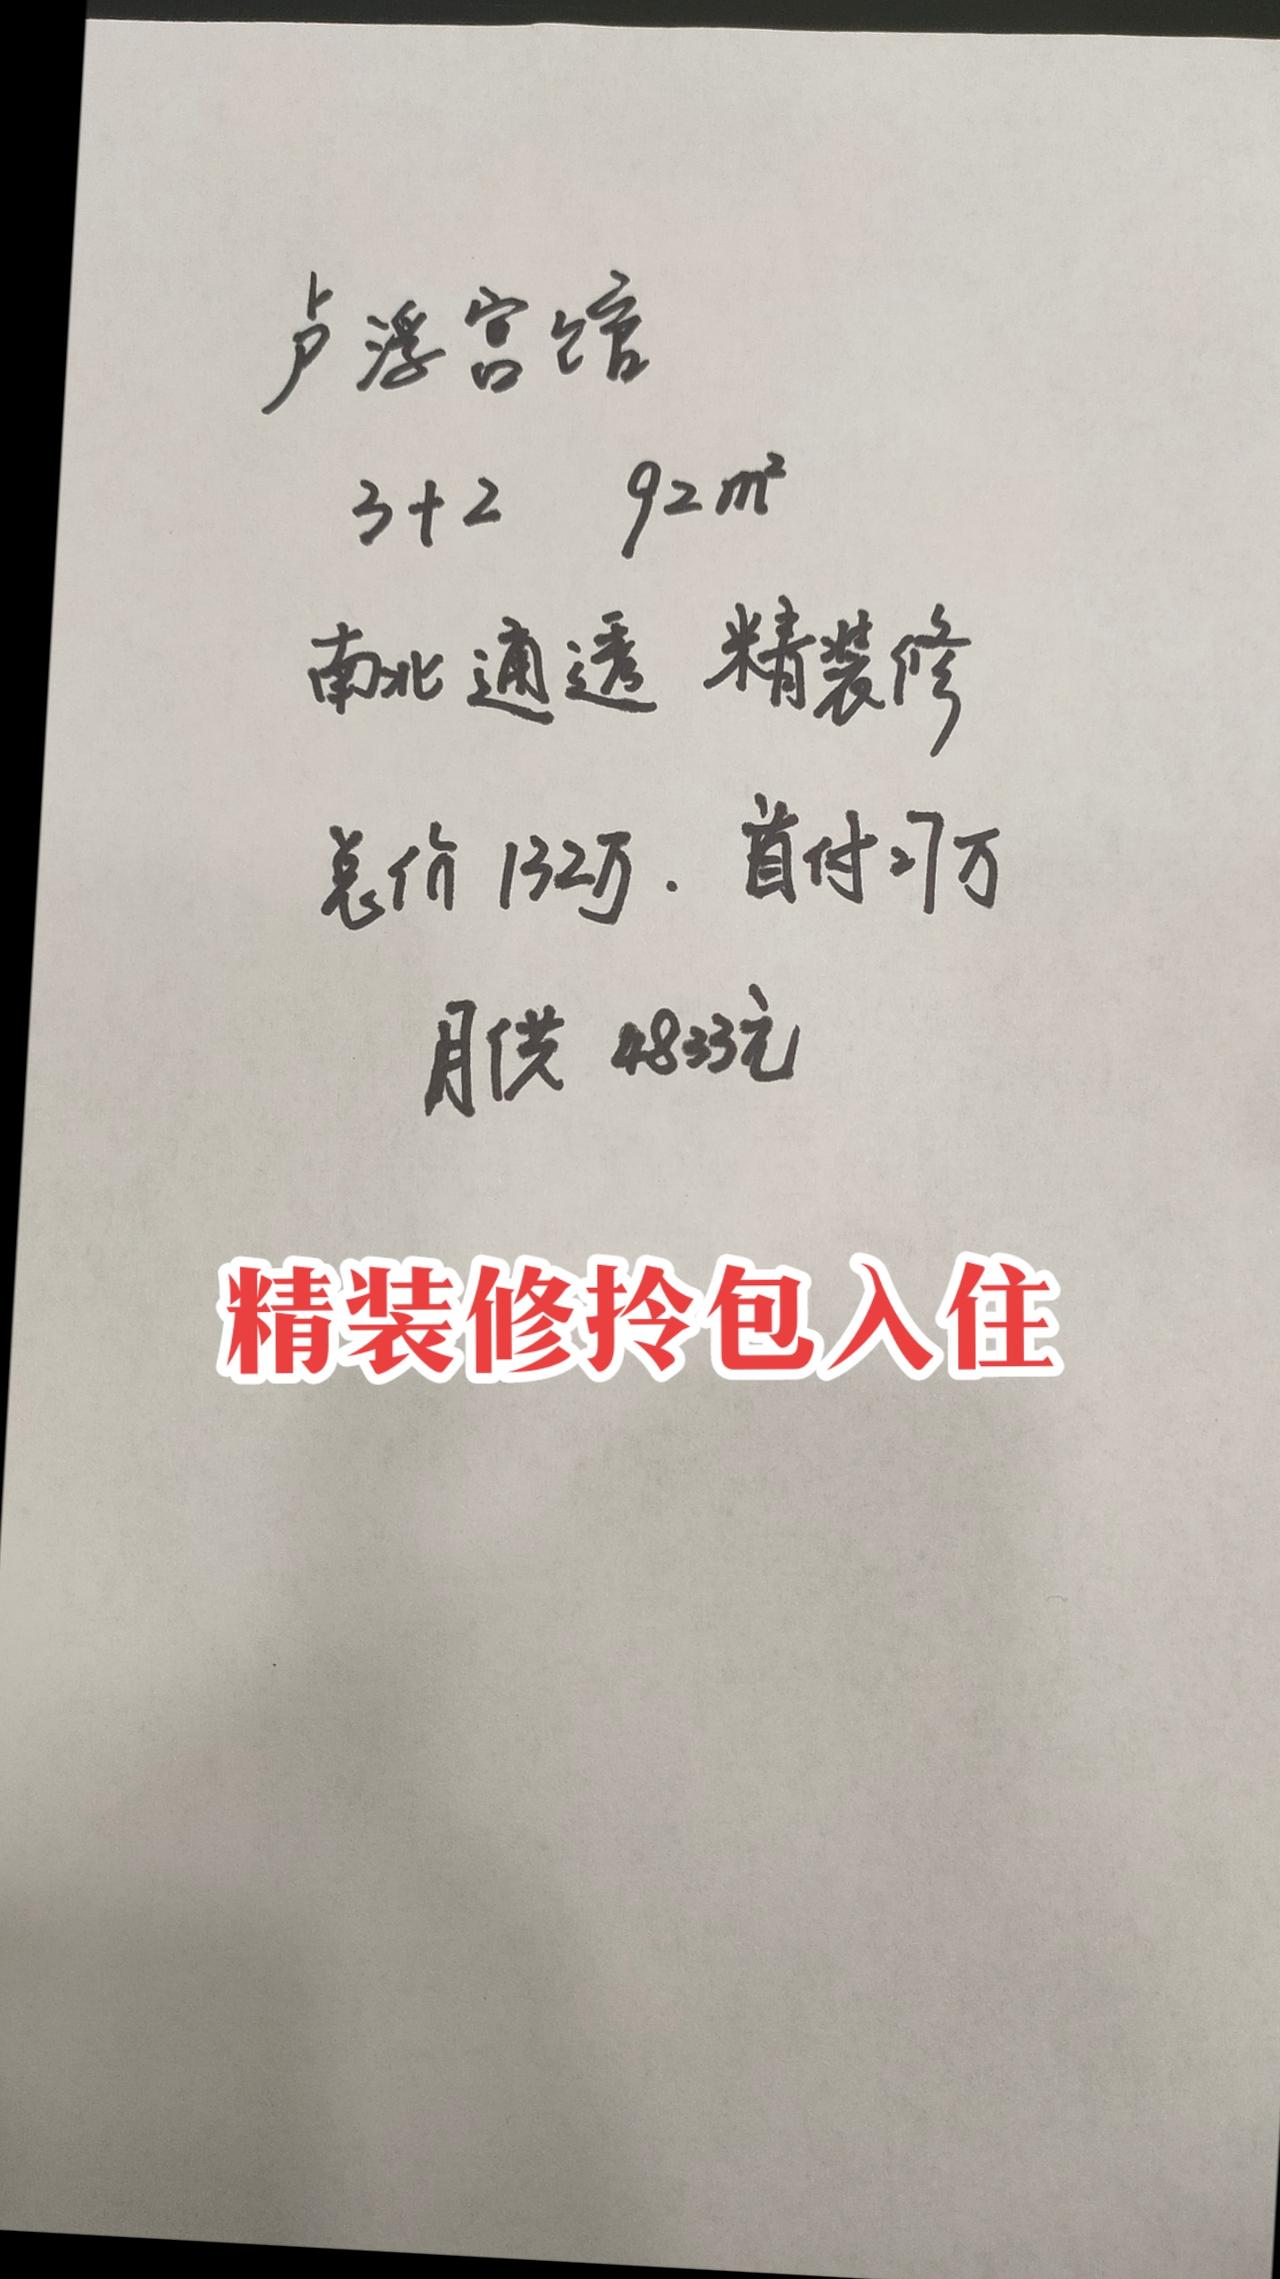 卢浮宫馆
3+2 92m²
南北通透 精装修
总价132万. 首付27万
月供 4833元
精装修拎包入住